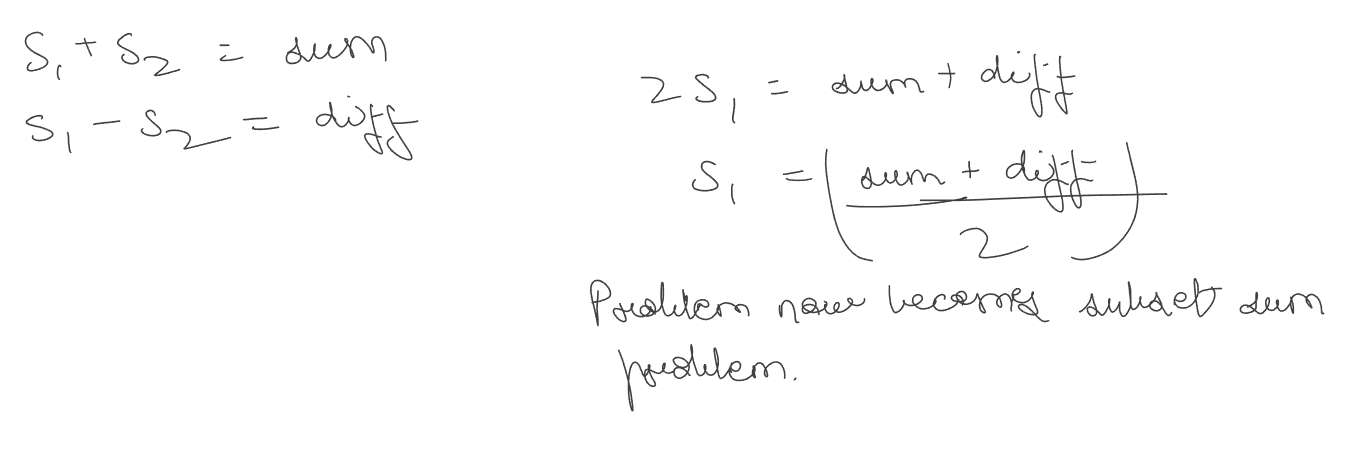 S₁ + S₂ = sum
S₁ - S₂ = diff
2S₁ = sum + diff
S₁ = (sum + diff / 2)
Problem now becomes subset sum
problem.